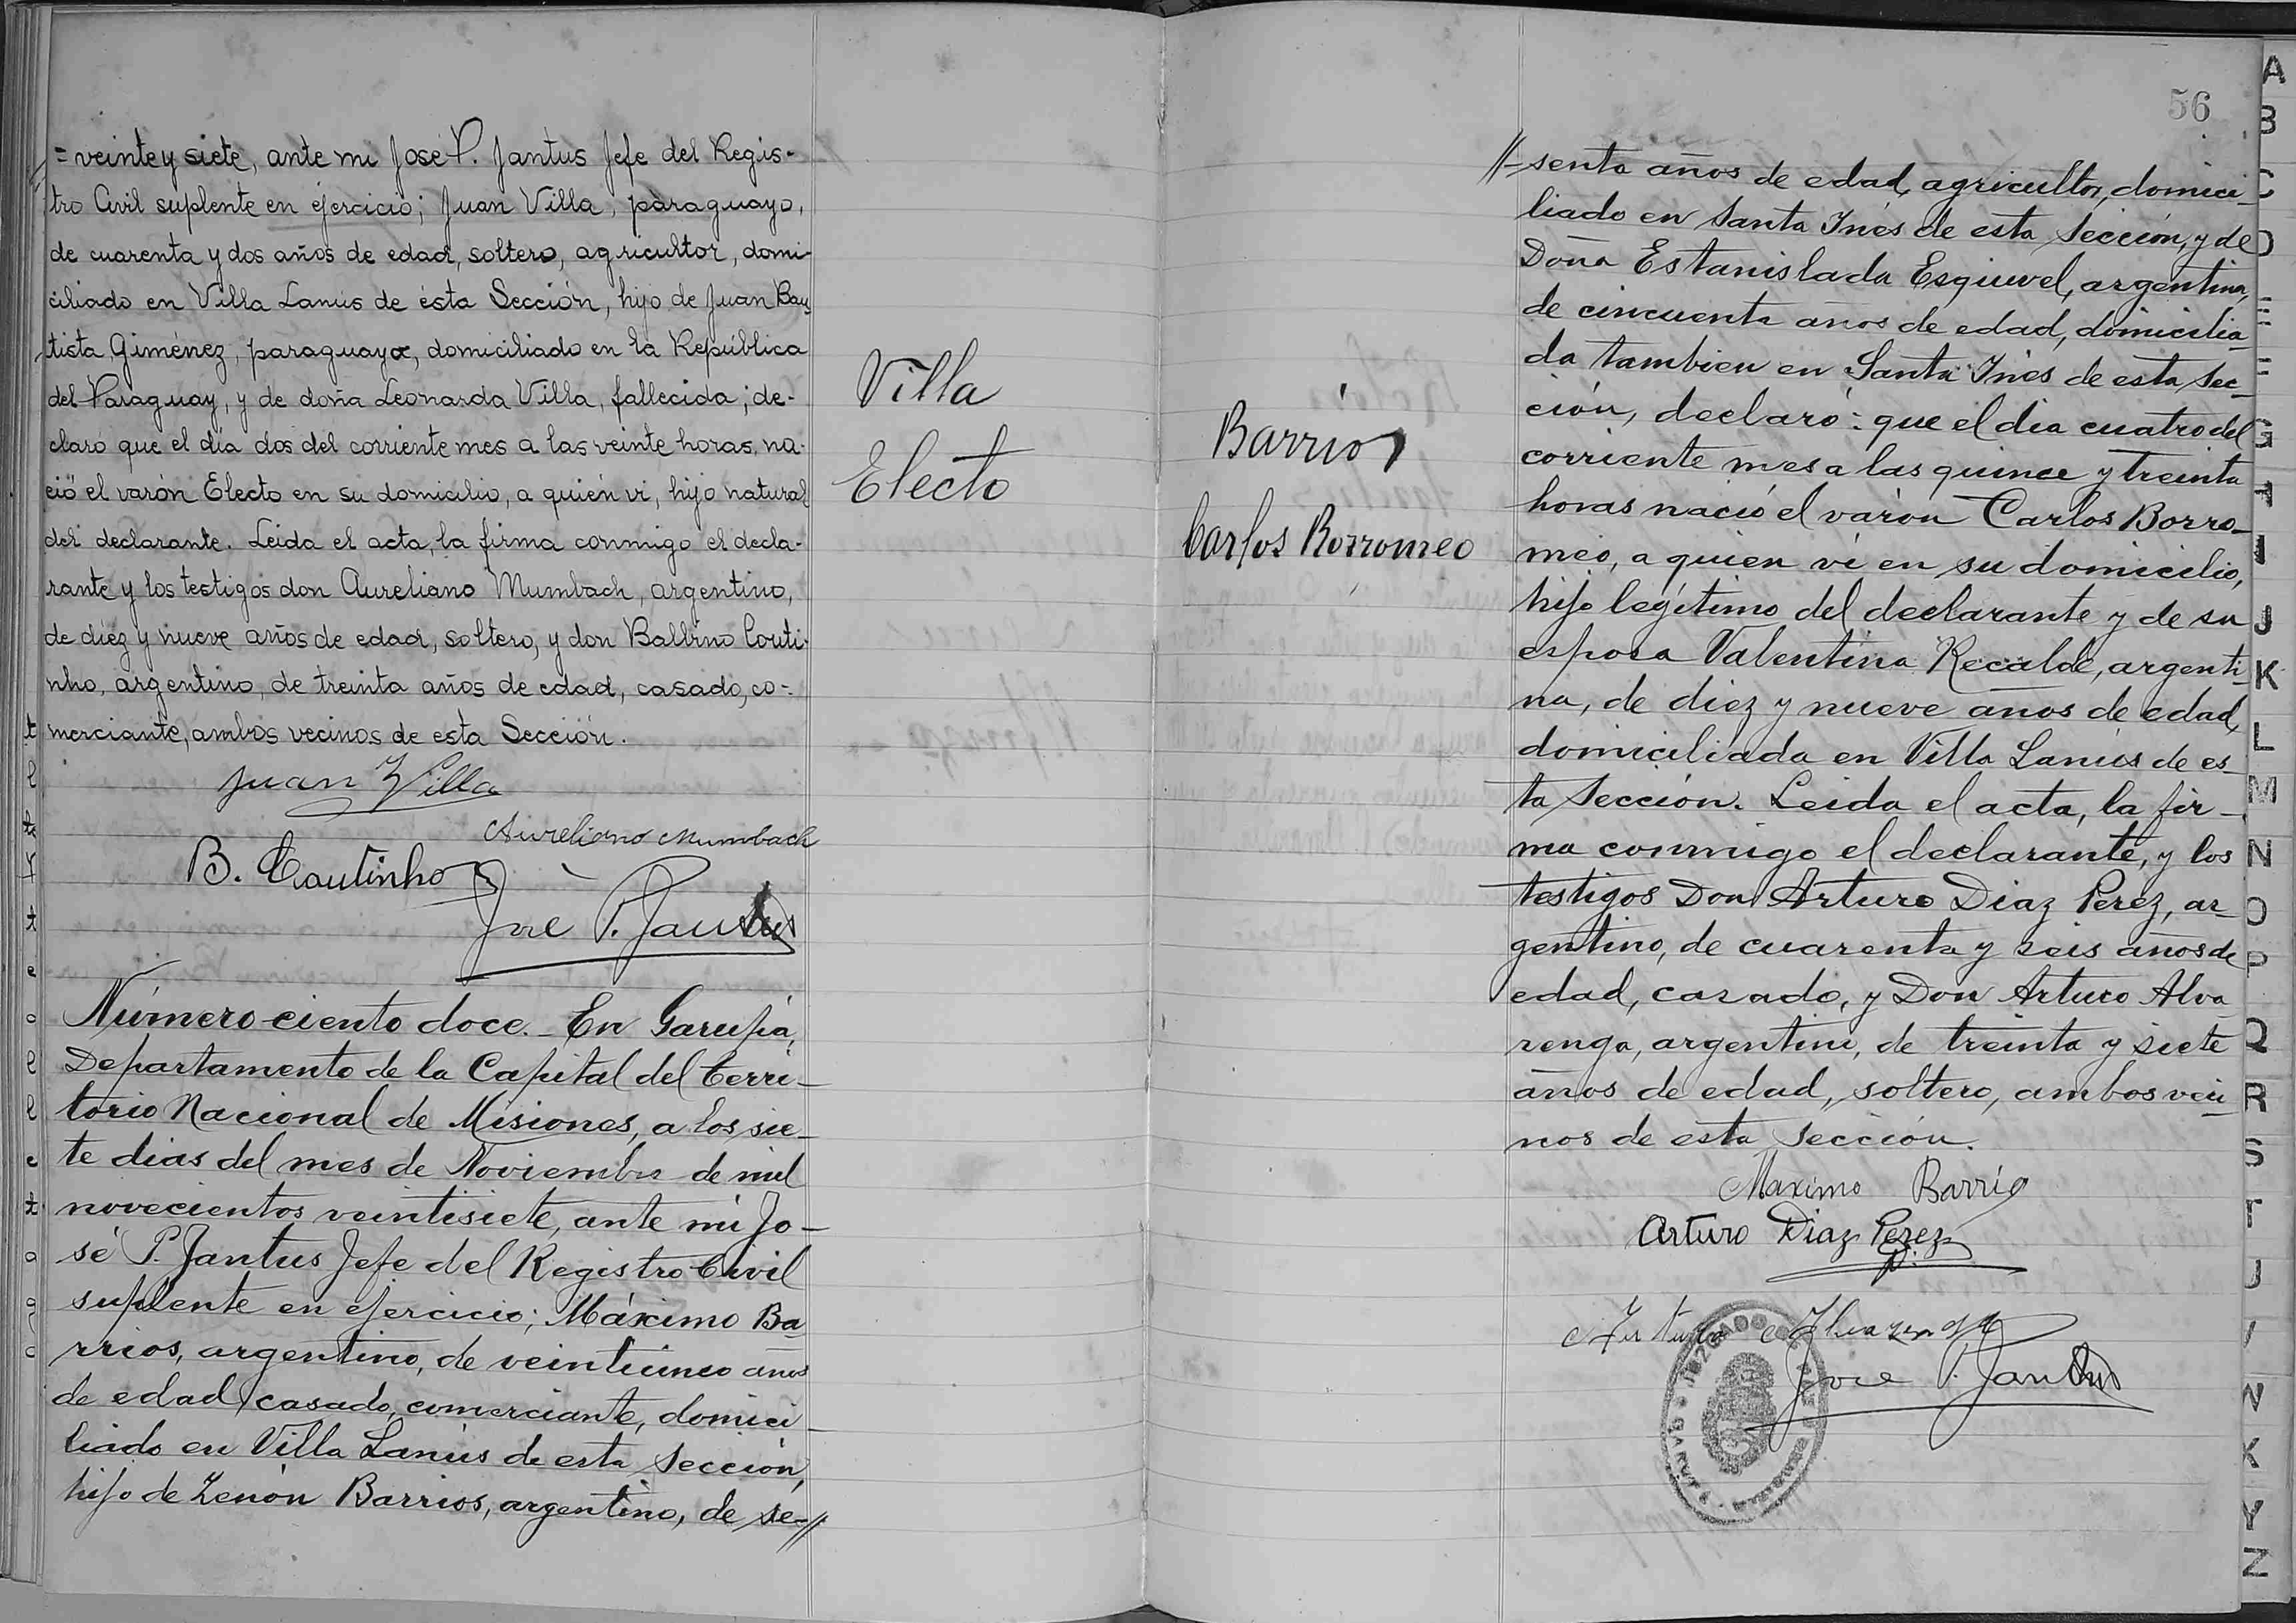 = veinte y siete, ante mi José P. Jantus Jefe del Regis-
tro Civil suplente en ejercicio; Juan Villa, paraguayo,
de cuarenta y dos años de edad, soltero, agricultor, domi-
ciliado en Villa Lanús de ésta Sección, hijo de Juan Bau
tista Giménez, paraguayo, domiciliado en la República
del Paraguay, y de doña Leonarda Villa, fallecida; de-
claró que el día dos del corriente mes a las veinte horas, na-
ció el varón Electo en su domicilio, a quién vi, hijo natural
del declarante. Leida el acta, la firma conmigo el decla-
rante y los testigos don Aureliano Mumbach, argentino,
de diez y nueve años de edad, soltero, y don Balbino Couti-
nho, argentino, de treinta años de edad, casado, co-
merciante, ambos vecinos de esta Sección.
Juan Villa
Aureliano Mumbach
B. Coutinho
José P. Jantus
Villa
Electo
Número ciento doce. En Garupá,
Departamento de la Capital del Terri-
torio Nacional de Misiones, a los sie-
te dias del mes de Noviembre de mil
novecientos veintisiete, ante mi Jo-
sé P. Jantus Jefe del Registro Civil
suplente en ejercicio; Máximo Ba
rrios, argentino, de veinticinco años
de edad, casado, comerciante, domici-
liado en Villa Lanús de esta Sección,
hijo de Zenón Barrios, argentino, de se-//
56
Barrios
Carlos Borromeo
//- senta años de edad, agricultor, domici-
liado en Santa Inés de esta Sección, y de
Doña Estanislada Esquivel, argentina,
de cincuenta años de edad, domicilia-
da tambien en Santa Inés de esta Sec-
ción, declaró: que el dia cuatro del
corriente mes a las quince y treinta
horas nació el varón Carlos Borro-
meo, a quien vi en su domicilio,
hijo legítimo del declarante y de su
esposa Valentina Recalde, argenti-
na, de diez y nueve años de edad,
domiciliada en Villa Lanús de es-
ta Sección. Leida el acta, la fir-
ma conmigo el declarante, y los
testigos Don Arturo Diaz Perez, ar-
gentino, de cuarenta y seis años de
edad, casado, y Don Arturo Alva
renga, argentino, de treinta y siete
años de edad, soltero, ambos veci-
nos de esta Sección.
Maximo Barrio
Arturo Diaz Perez
Arturo Alvarenga
José P. Jantus
A
B
C
D
E
F
G
H
I
J
K
L
M
N
O
P
Q
R
S
T
U
V
W
X
Y
Z